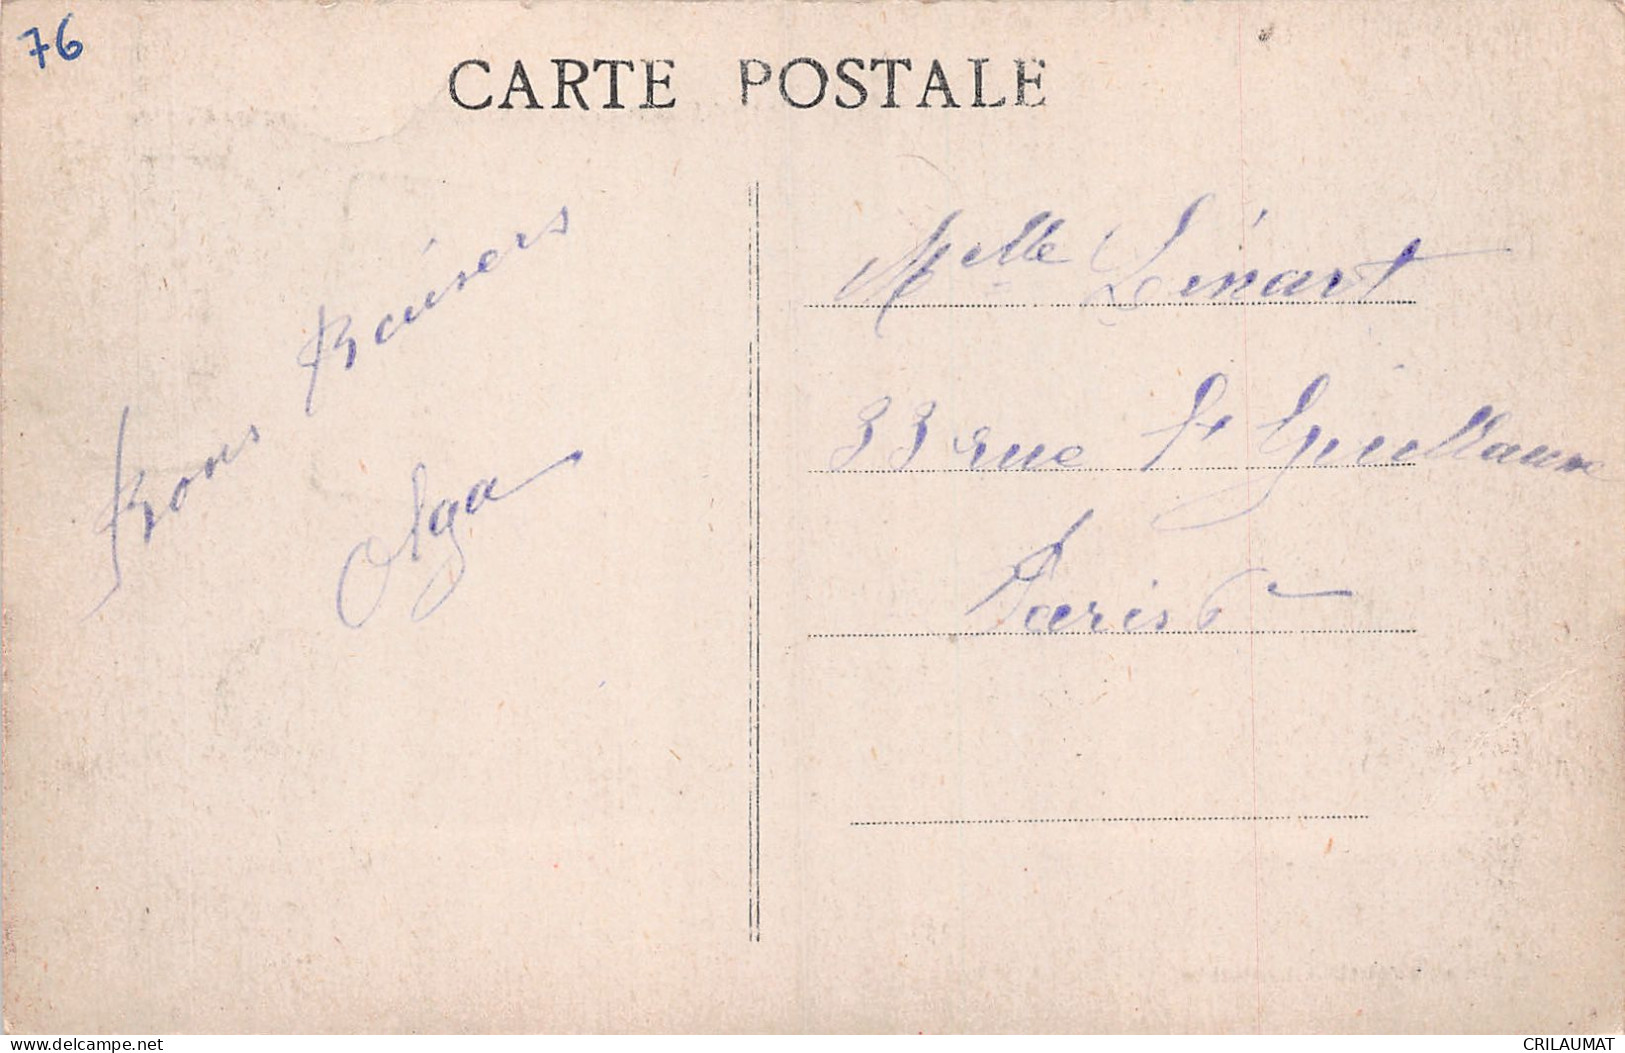 76
CARTE POSTALE
Bons Baisers
Olga
Mlle Lénart
33 rue St Guillaume
Paris 6e
delcampe.net
CRILAUMAT